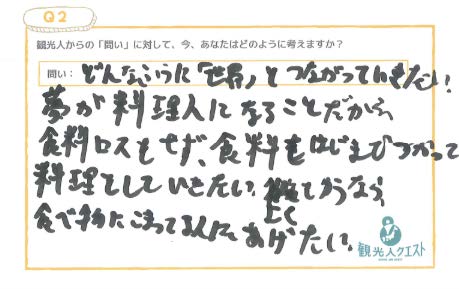 Q2
観光人からの「問い」に対して、今、あなたはどのように考えますか？
問い： どんなふうに「世界」とつながっていきたい！
夢が料理人になることだから、
食料ロスもせず、食料を つかって
料理をしていきたい。 なら、
食べ物にこまってる人に あげたい。
観光人クエスト